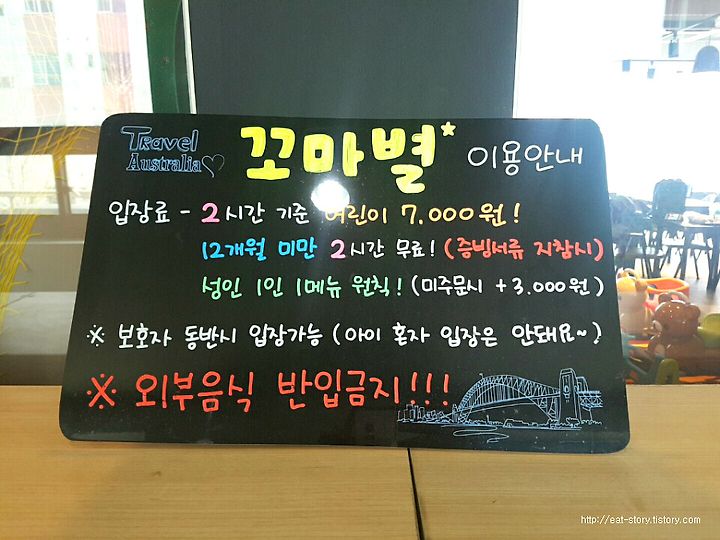 Travel
Australia♡
꼬마별* 이용안내
입장료 - 2시간 기준 어린이 7.000원!
12개월 미만 2시간 무료! (증빙서류 지참시)
성인 1인 1메뉴 원칙! (미주문시 +3.000원)
※ 보호자 동반시 입장가능 (아이 혼자 입장은 안돼요~)
※ 외부음식 반입금지!!!
http://eat-story.tistory.com